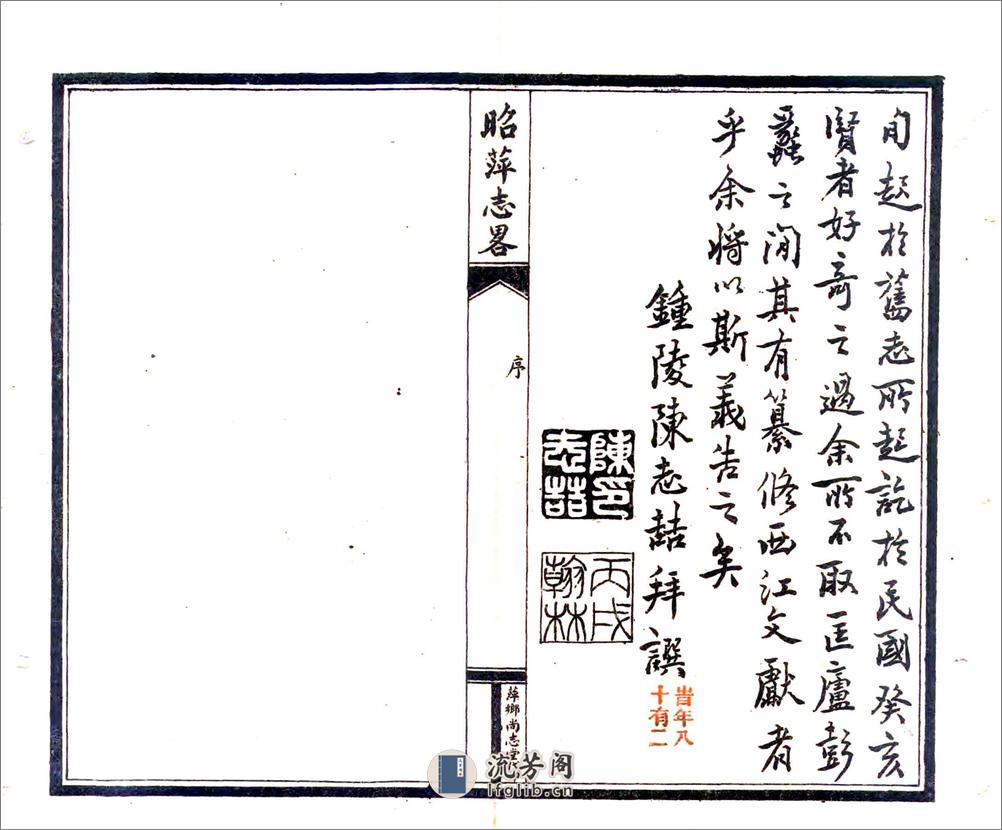 旬起於舊志所起訖於民國癸亥
賢者好奇之過余所不取匡廬彭
蠡之間其有纂修西江文獻者
乎余將以斯義告之矣
鍾陵陳志喆拜譔
旹年八
十有二
陳印
志喆
丙戌
翰林
昭萍志畧
序
萍鄉尚志堂
流芳阁
lfglib.cn